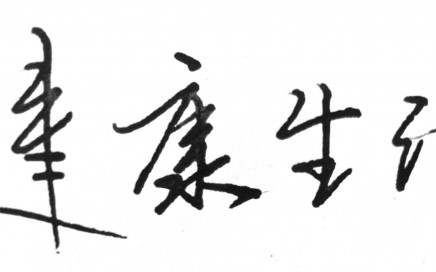 建康生